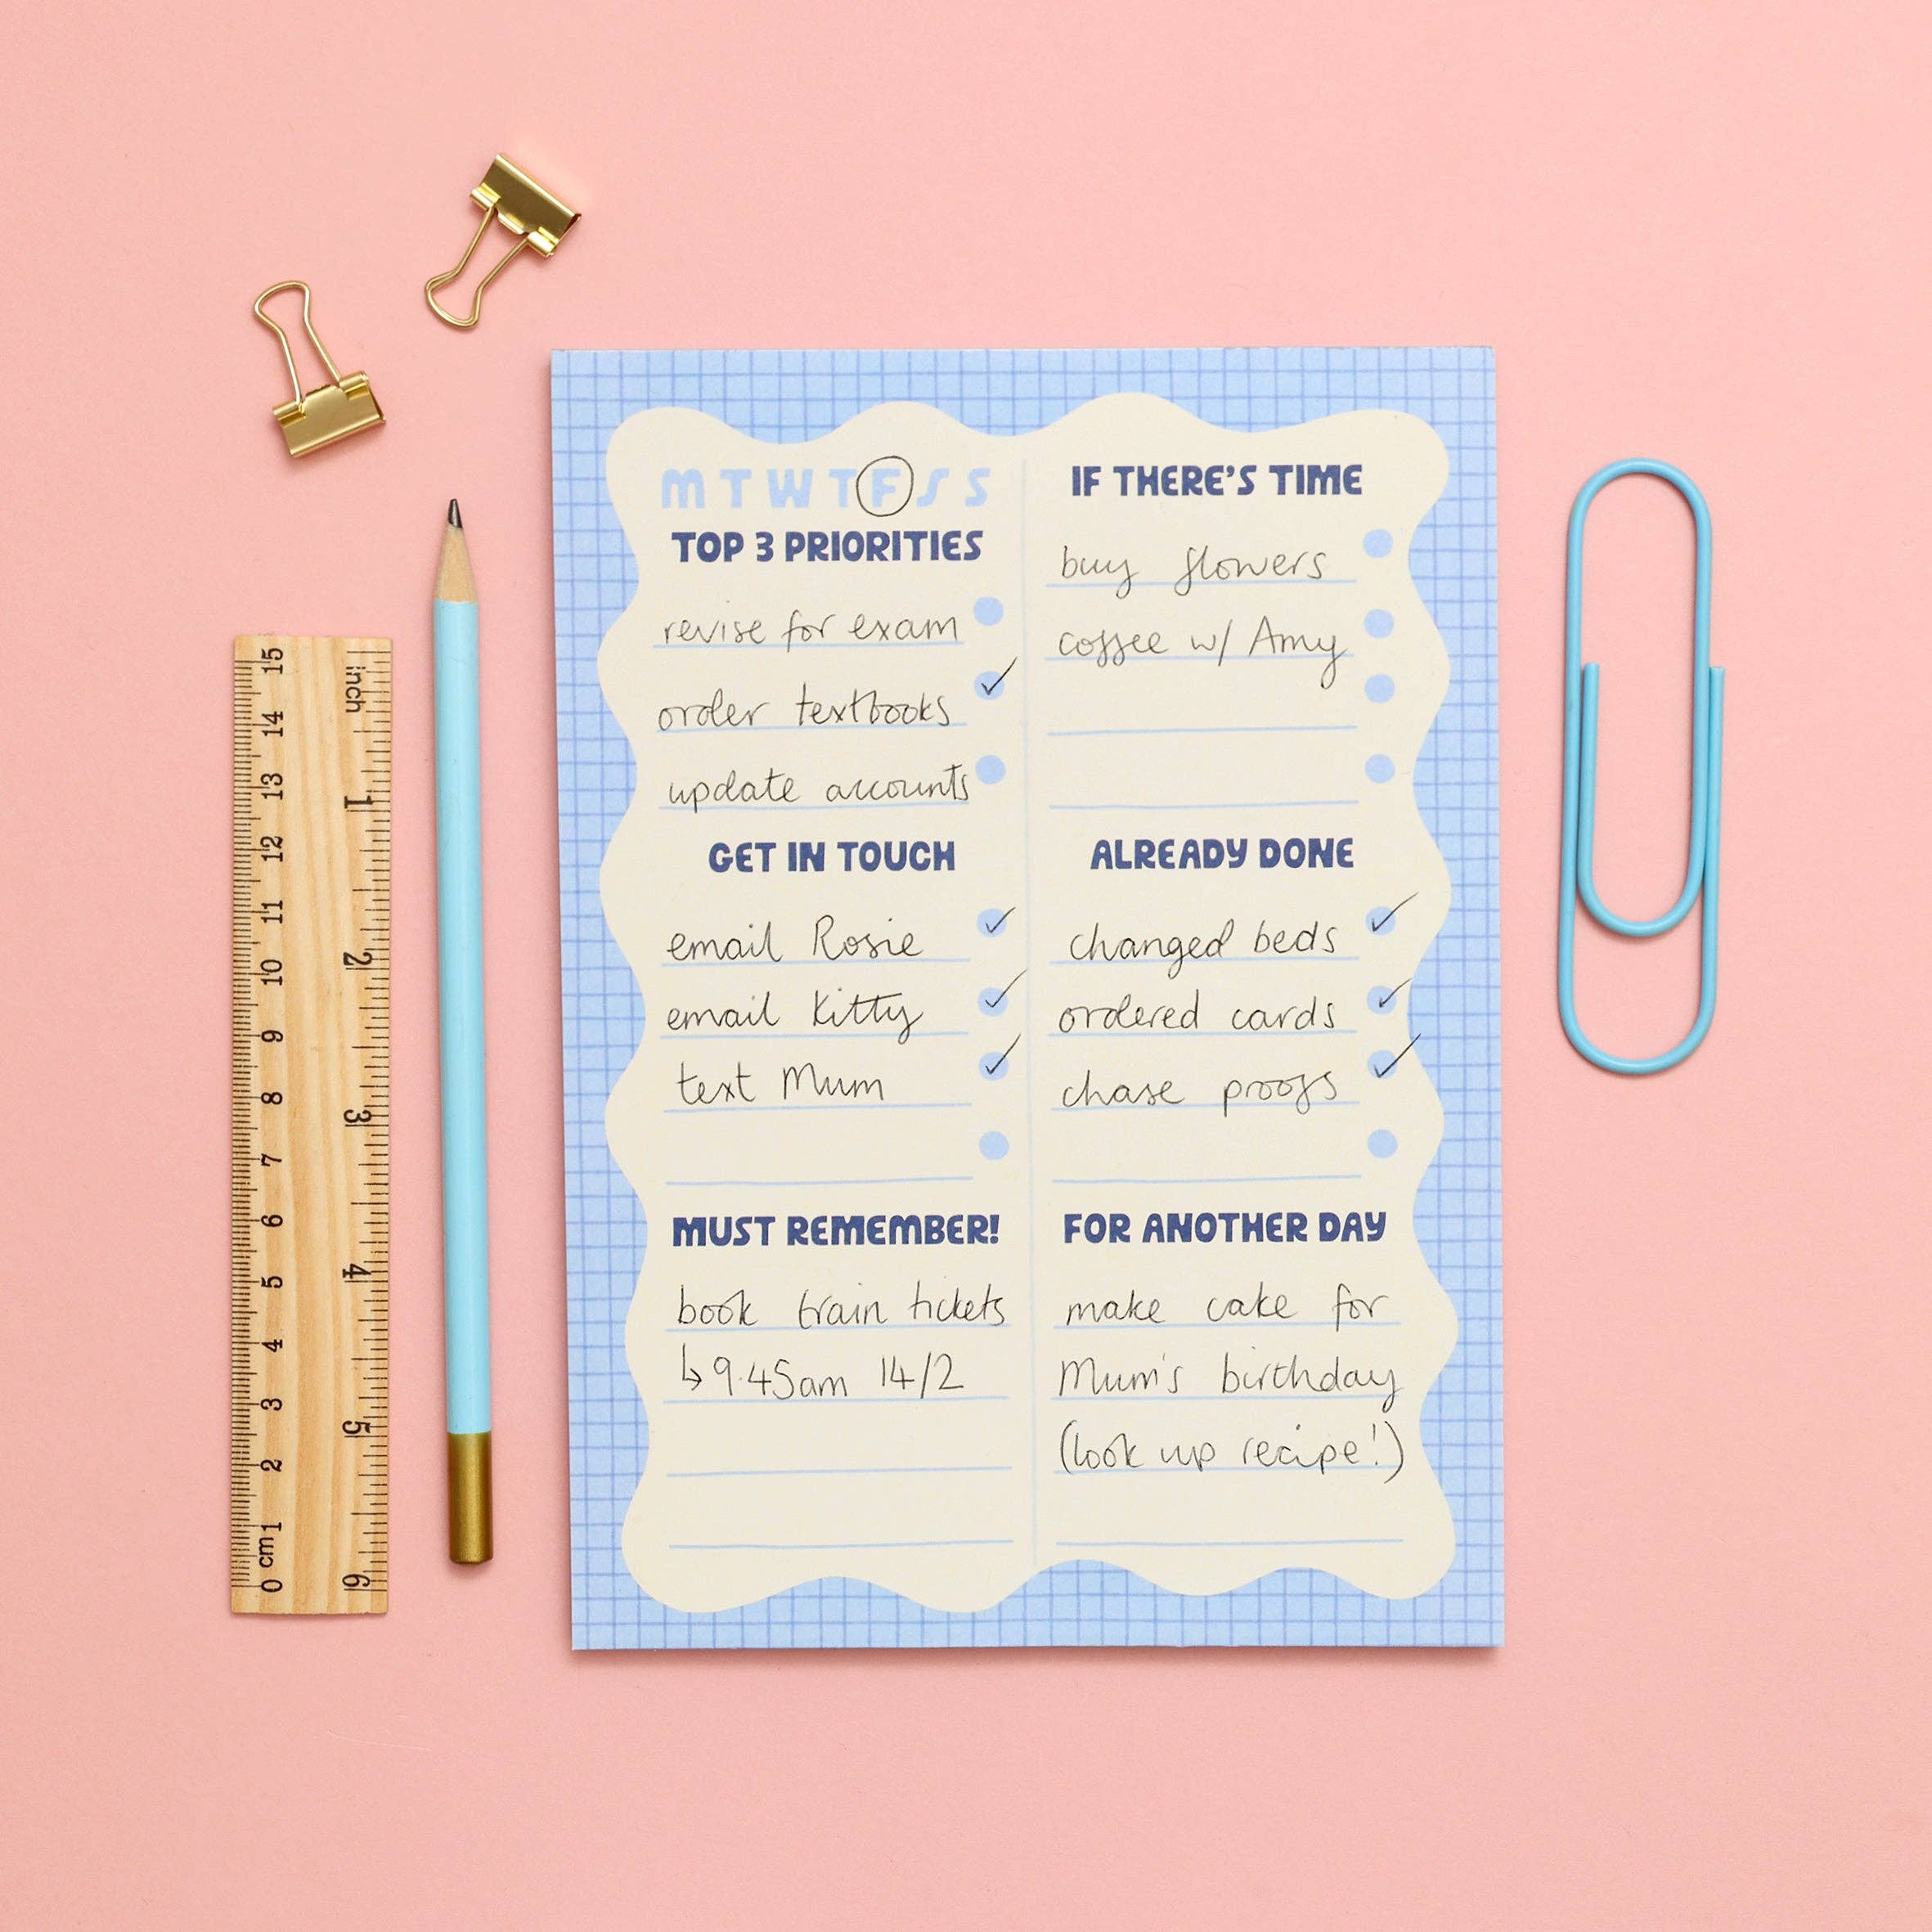 M T W T F S S
TOP 3 PRIORITIES
revise for exam
order textbooks
update accounts
GET IN TOUCH
email Rosie
email Kitty
text Mum
MUST REMEMBER!
book train tickets
↳9.45am 14/2
IF THERE'S TIME
buy flowers
coffee w/ Amy
ALREADY DONE
changed beds
ordered cards
chase proofs
FOR ANOTHER DAY
make cake for
Mum's birthday
(look up recipe!)
15 14 13 12 11 10 9 8 7 6 5 4 3 2 1 cm 0
inch 1 2 3 4 5 6